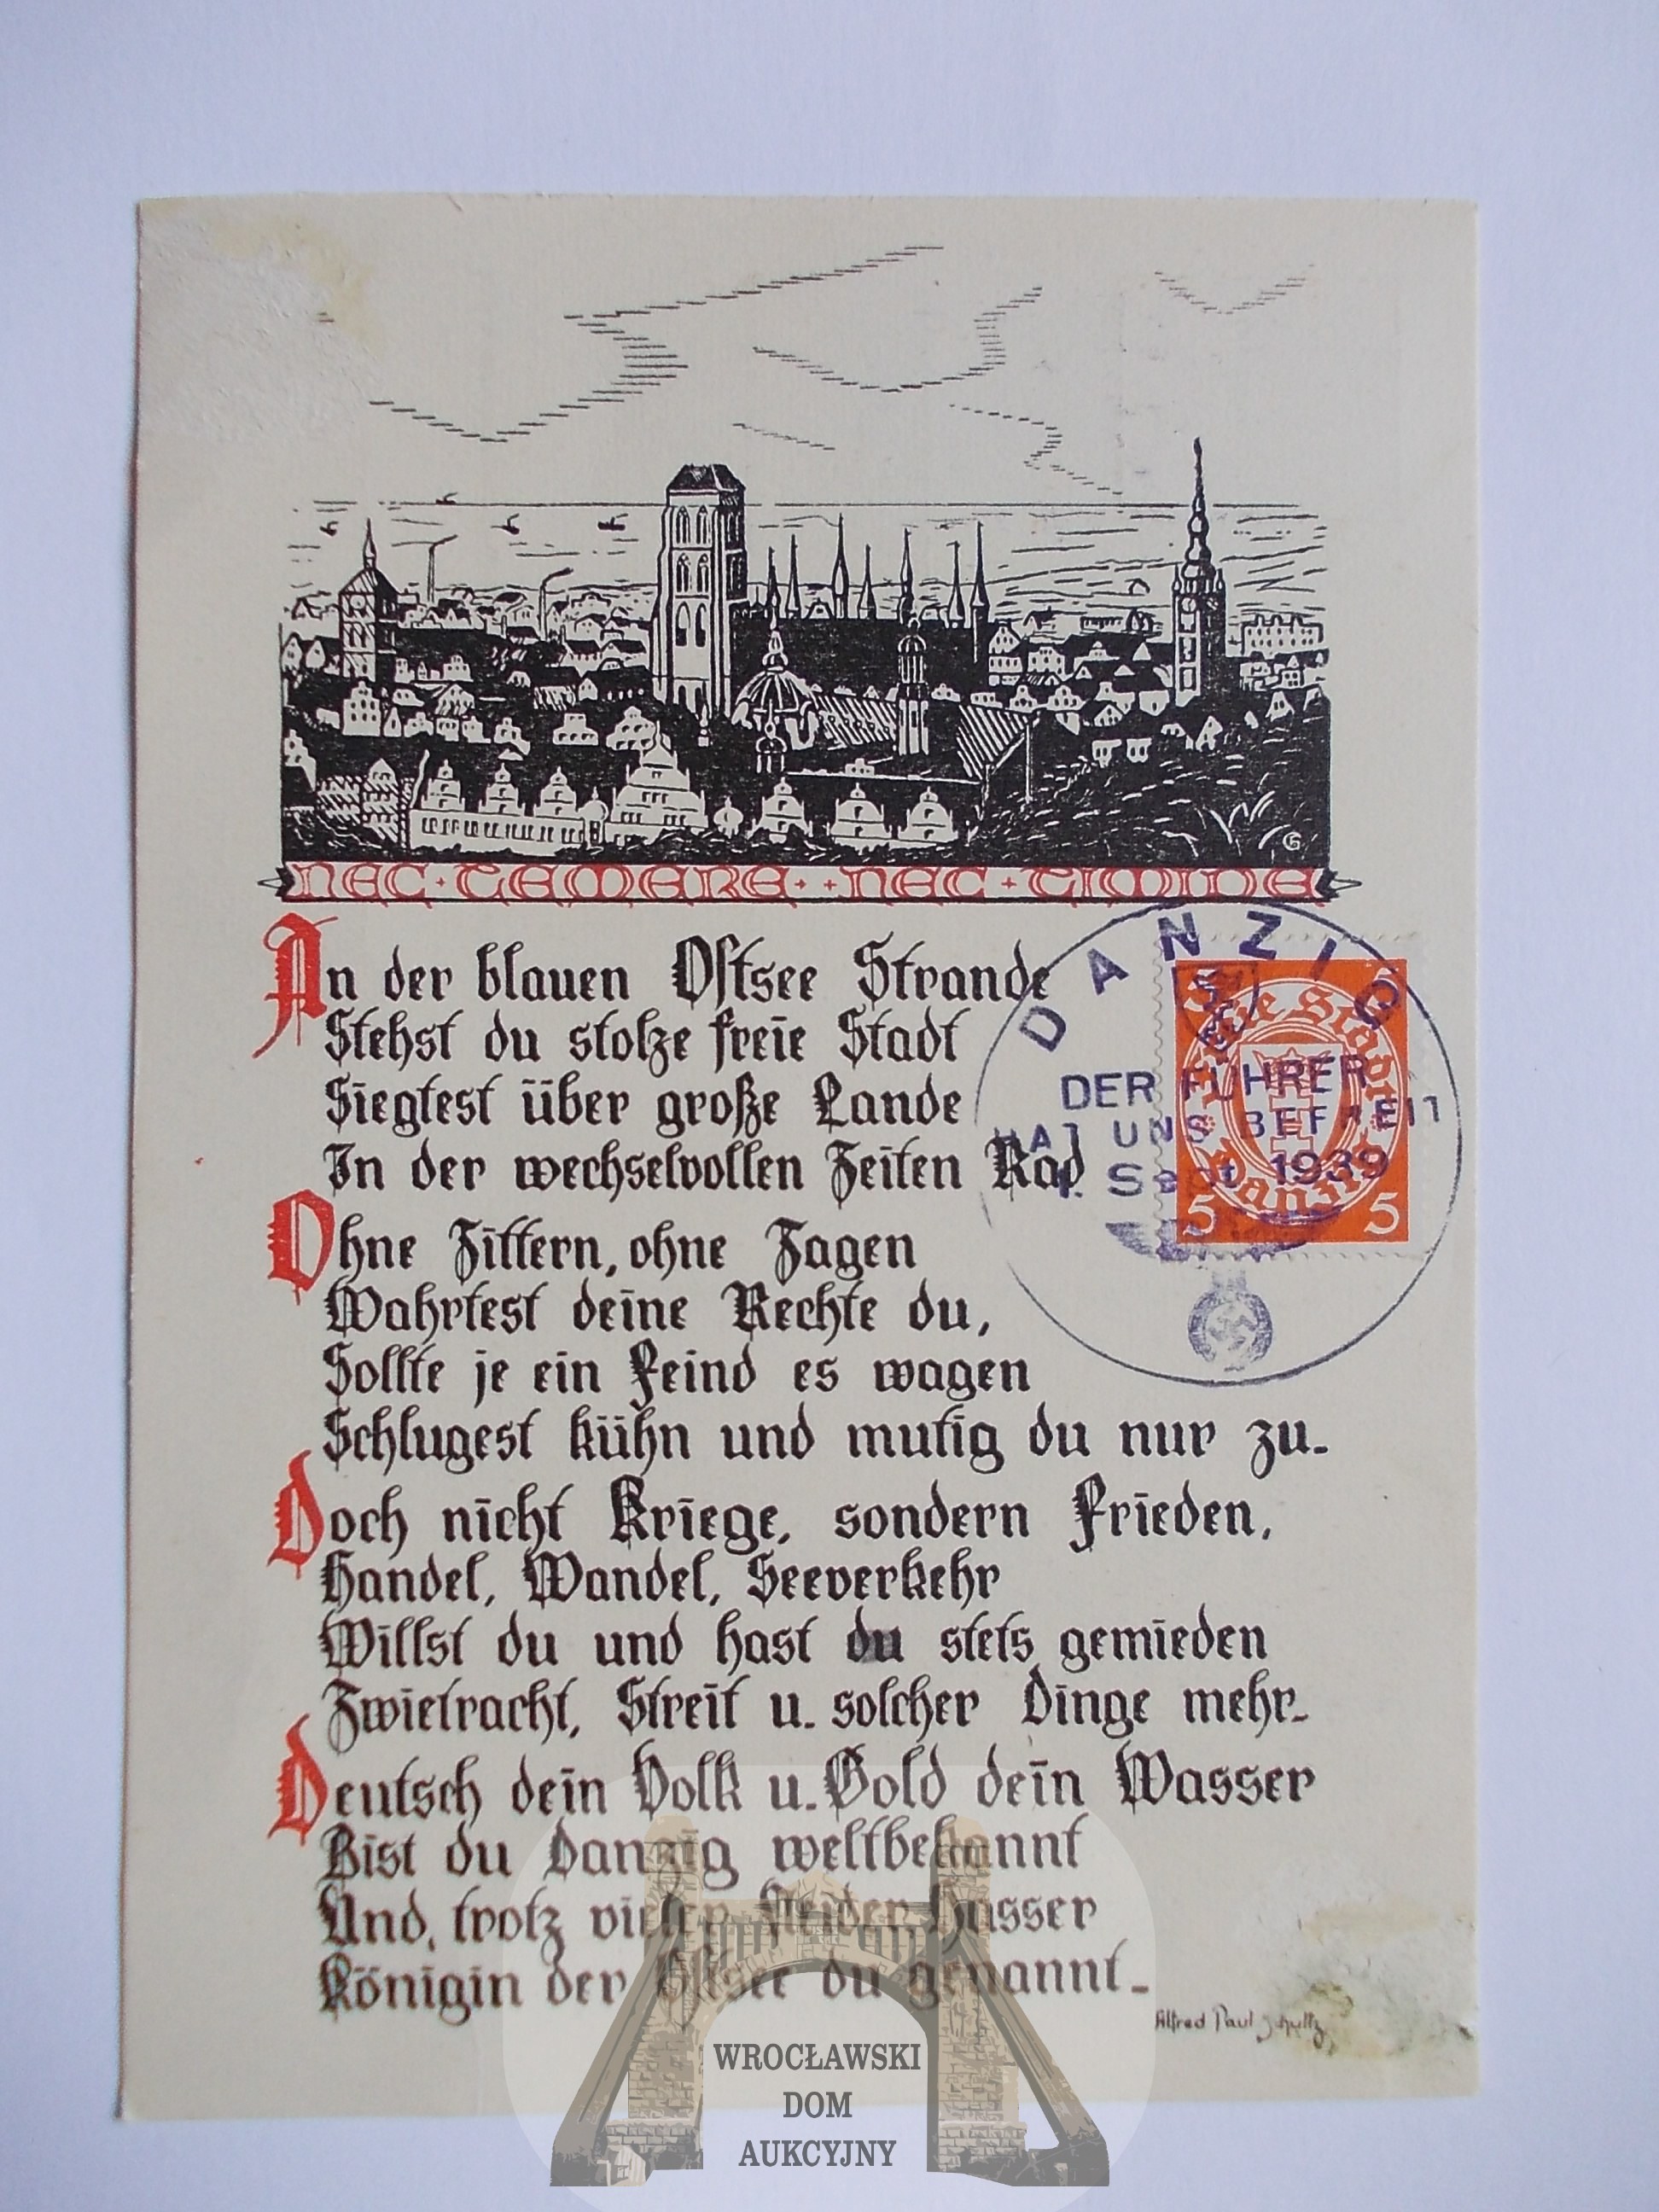 NEC · TEMERE · · NEC · TIMIDE
An der blauen Ostsee Strande
Stehst du stolze freie Stadt
Siegtest über große Lande
In der wechselvollen Zeiten Rad
Ohne Zittern, ohne Zagen
Wahrtest deine Rechte du,
Sollte je ein Feind es wagen
Schlugest kühn und mutig du nur zu.
Doch nicht Kriege, sondern Frieden,
Handel, Wandel, Seeverkehr
Willst du und hast du stets gemieden
Zwietracht, Streit u. solcher Dinge mehr.
Deutsch dein Volk u. Gold dein Wasser
Bist du Danzig weltbekannt
Und, trotz vieler Neider Hasser
Königin der Ostsee du genannt.
Alfred Paul Schultz
DANZIG
DER FÜHRER
HAT UNS BEFREIT
1. Sept 1939
5
Freie Stadt
Danzig
5 5
WROCŁAWSKI
DOM
AUKCYJNY